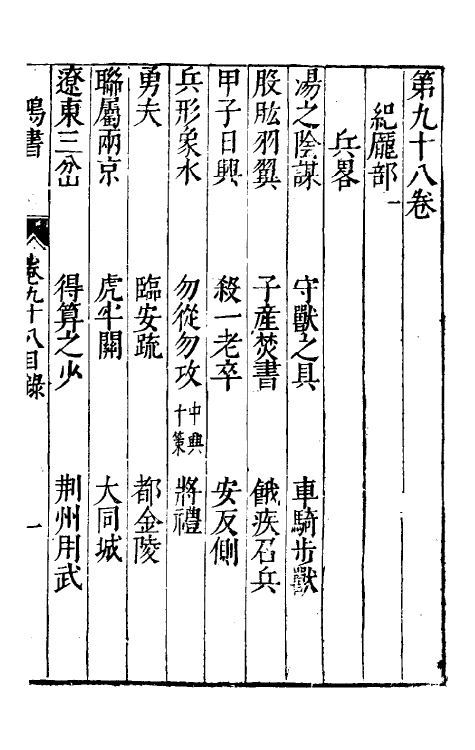 第九十八卷
紀龐部一
兵畧
湯之陰謀　守獸之具　車騎步獸
股肱羽翼　子産焚書　餓疾召兵
甲子日興　殺一老卒　安反側
兵形象水　勿從勿攻 中興十策　將禮
勇夫　臨安疏　都金陵
聯屬兩京　虎牢關　大同城
遼東三岔　得算之少　荆州用武
鴻書　卷九十八目錄　一